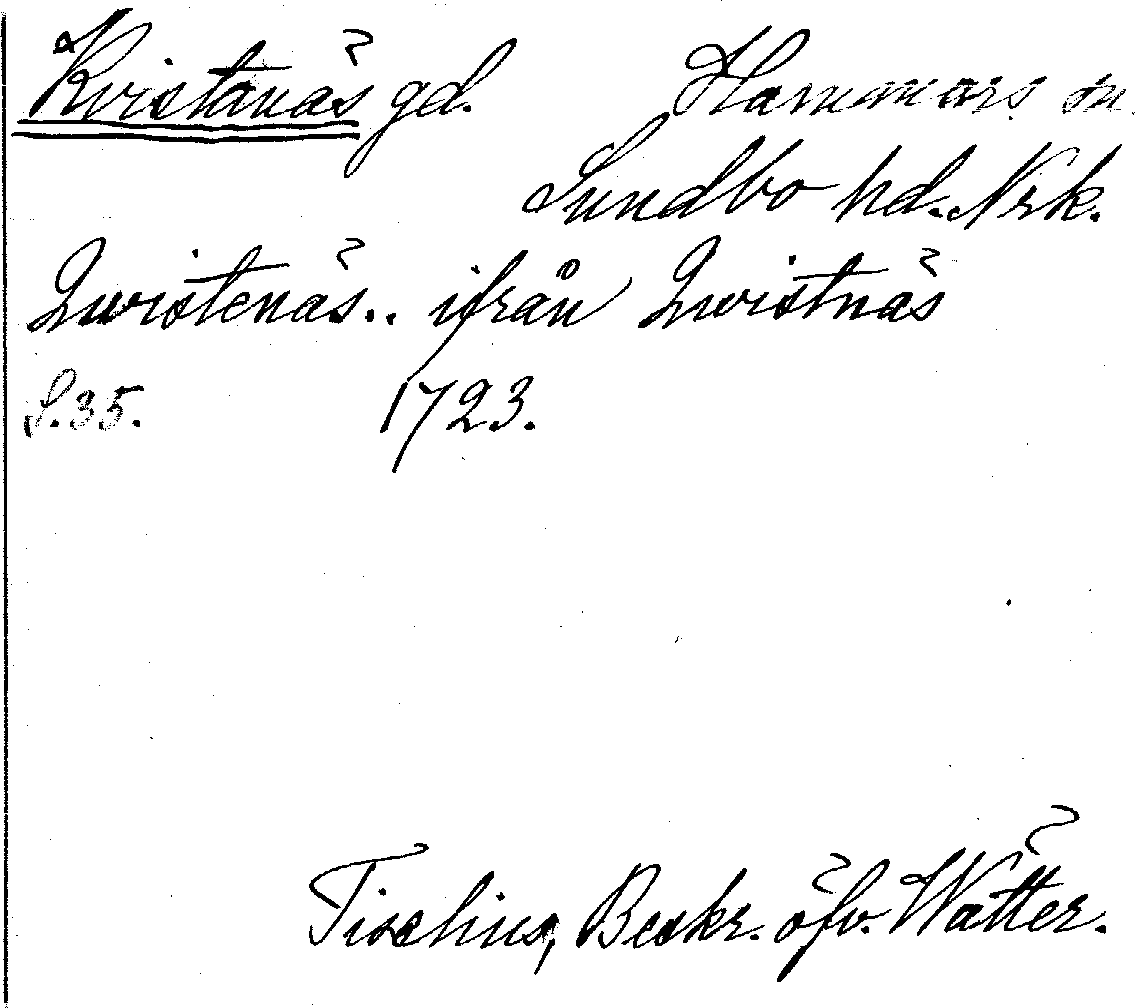 Kvistanäs gd. Hammars sn.
Sundbo hd. Nrk.
Qwistenäs.. ifrån Qwistnäs
S. 35. 1723.
Tiselius, Beskr. öfv. Wätter.